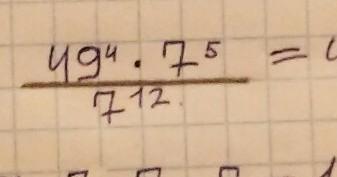 49⁴ · 7⁵ =
7¹²